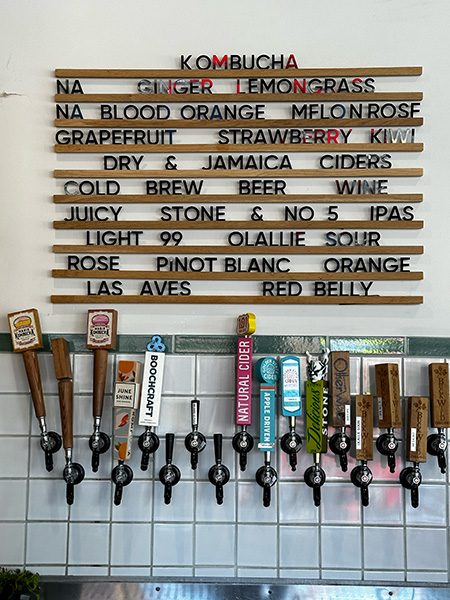 KOMBUCHA
NA GINGER LEMONGRASS
NA BLOOD ORANGE MELON ROSE
GRAPEFRUIT STRAWBERRY KIWI
DRY & JAMAICA CIDERS
COLD BREW BEER WINE
JUICY STONE & NO 5 IPAS
LIGHT 99 OLALLIE SOUR
ROSE PINOT BLANC ORANGE
LAS AVES RED BELLY
JUNE SHINE
BOOCHCRAFT
NATURAL CIDER
APPLE DRIVEN
Delicious
STONE
BREW